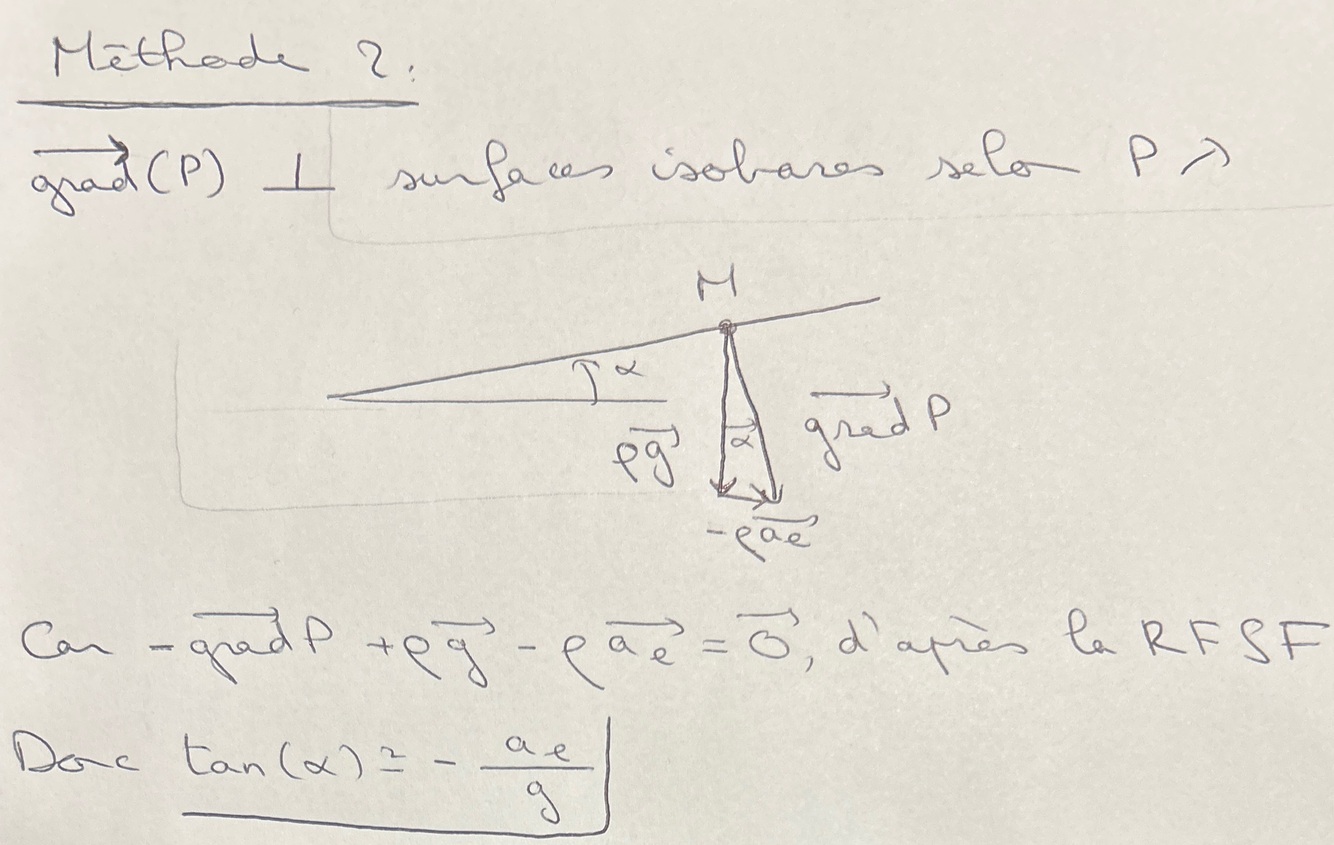 Méthode 2.
grad(P) ⊥ surfaces isobares selon P ↗
M
α
ρg α grad P
-ρae
Car -grad P + ρg - ρae = 0, d'après la RFSF
Donc tan(α) = - ae/g